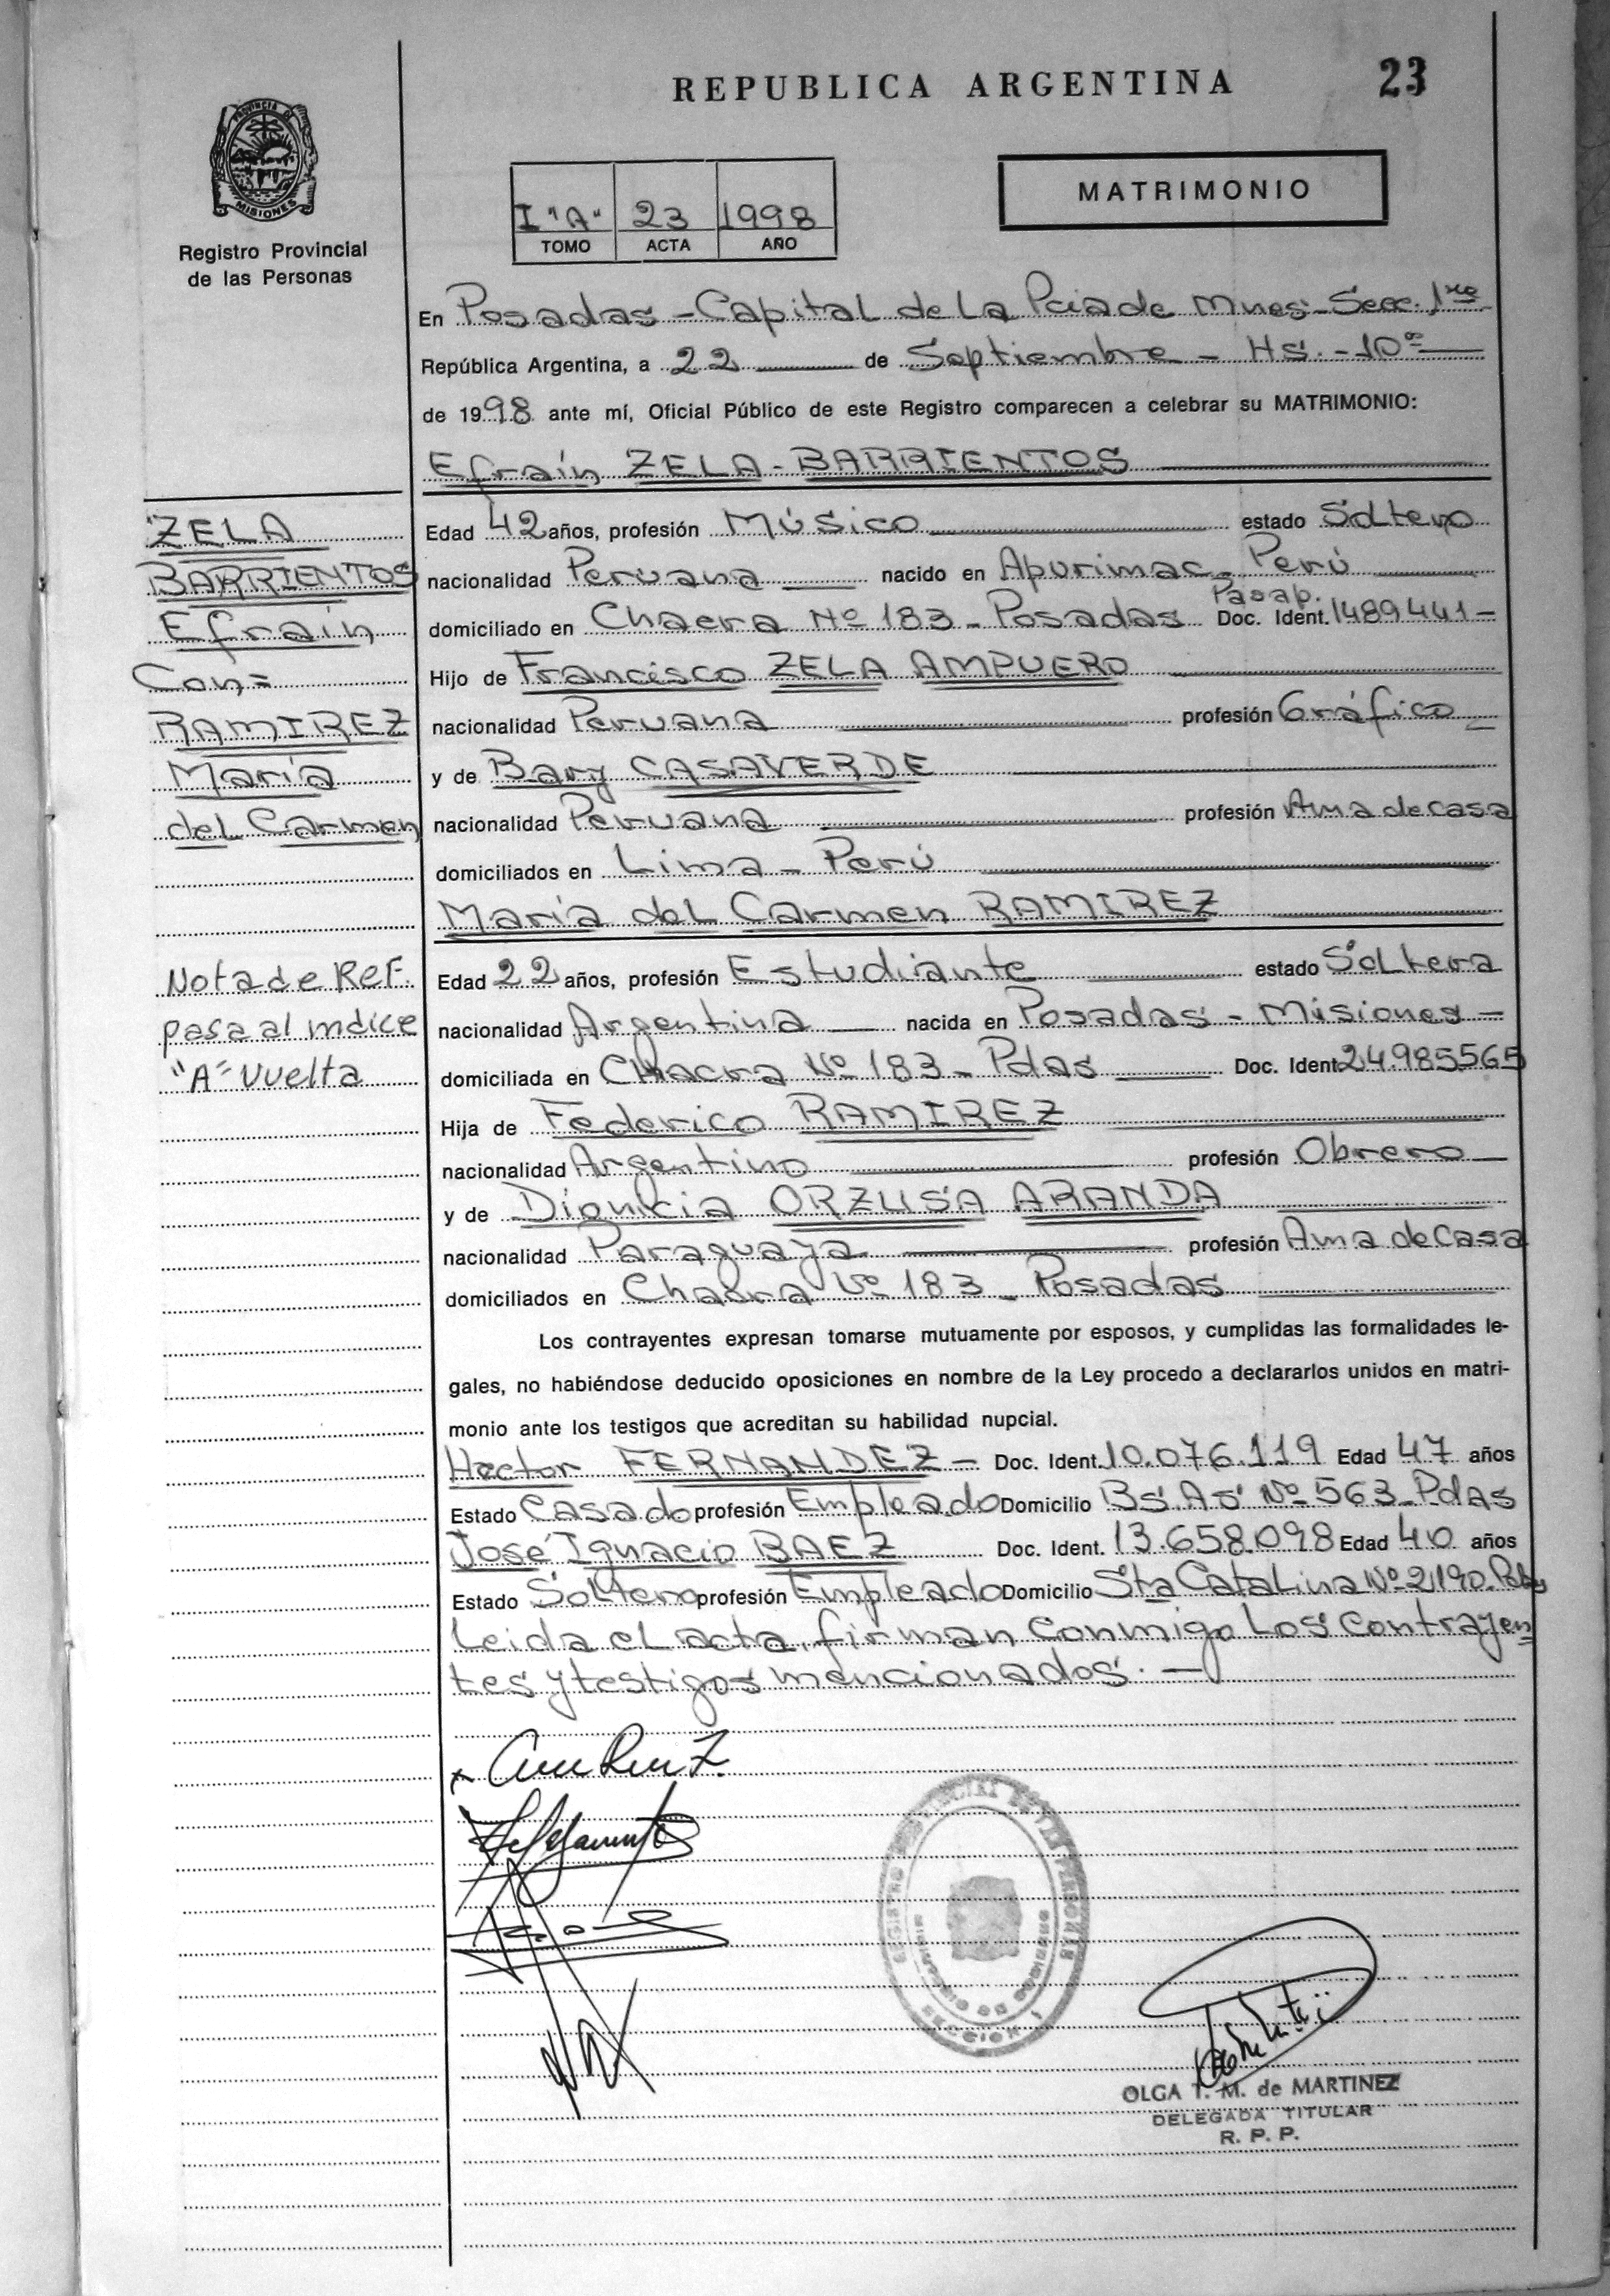 REPUBLICA ARGENTINA
23
PROVINCIA DE
MISIONES
Registro Provincial
de las Personas
I "A" 23 1998
TOMO ACTA AÑO
MATRIMONIO
En Posadas - Capital de La Pcia de Mnes - Secc. 1ra
República Argentina, a 22 de Septiembre - Hs. - 10
de 1998 ante mí, Oficial Público de este Registro comparecen a celebrar su MATRIMONIO:
Efraín ZELA - BARRIENTOS
Edad 42 años, profesión Músico estado Soltero
nacionalidad Peruana nacido en Apurimac - Perú
Pasap.
domiciliado en Chacra Nº 183 - Posadas Doc. Ident. 1489441 -
Hijo de Francisco ZELA AMPUERO
nacionalidad Peruana profesión Gráfico
y de Bary CASAVERDE
nacionalidad Peruana profesión Ama de casa
domiciliados en Lima - Perú
María del Carmen RAMIREZ
Edad 22 años, profesión Estudiante estado Soltera
nacionalidad Argentina nacida en Posadas - Misiones -
domiciliada en Chacra Nº 183 - Pdas Doc. Ident. 24.985.565
Hija de Federico RAMIREZ
nacionalidad Argentino profesión Obrero
y de ORZUSA ARANDA
nacionalidad Paraguaya profesión Ama de Casa
domiciliados en Chacra Nº 183 - Posadas
Los contrayentes expresan tomarse mutuamente por esposos, y cumplidas las formalidades le-
gales, no habiéndose deducido oposiciones en nombre de la Ley procedo a declararlos unidos en matri-
monio ante los testigos que acreditan su habilidad nupcial.
Hector FERNANDEZ - Doc. Ident. 10.076.119 Edad 47 años
Estado Casado profesión Empleado Domicilio Bs As Nº 563 - Pdas
José Ignacio BAEZ Doc. Ident. 13.658.098 Edad 40 años
Estado Soltero profesión Empleado Domicilio Sta Catalina Nº 2190 - Pdas
Leida el acta, firman conmigo Los Contrayen
tes y testigos mencionados. -
ZELA
BARRIENTOS
Efraín
Con =
RAMIREZ
María
del Carmen
Nota de Ref.
pasa al indice
"A" Vuelta
SECCION 1
OLGA T. M. de MARTINEZ
DELEGADA TITULAR
R. P. P.